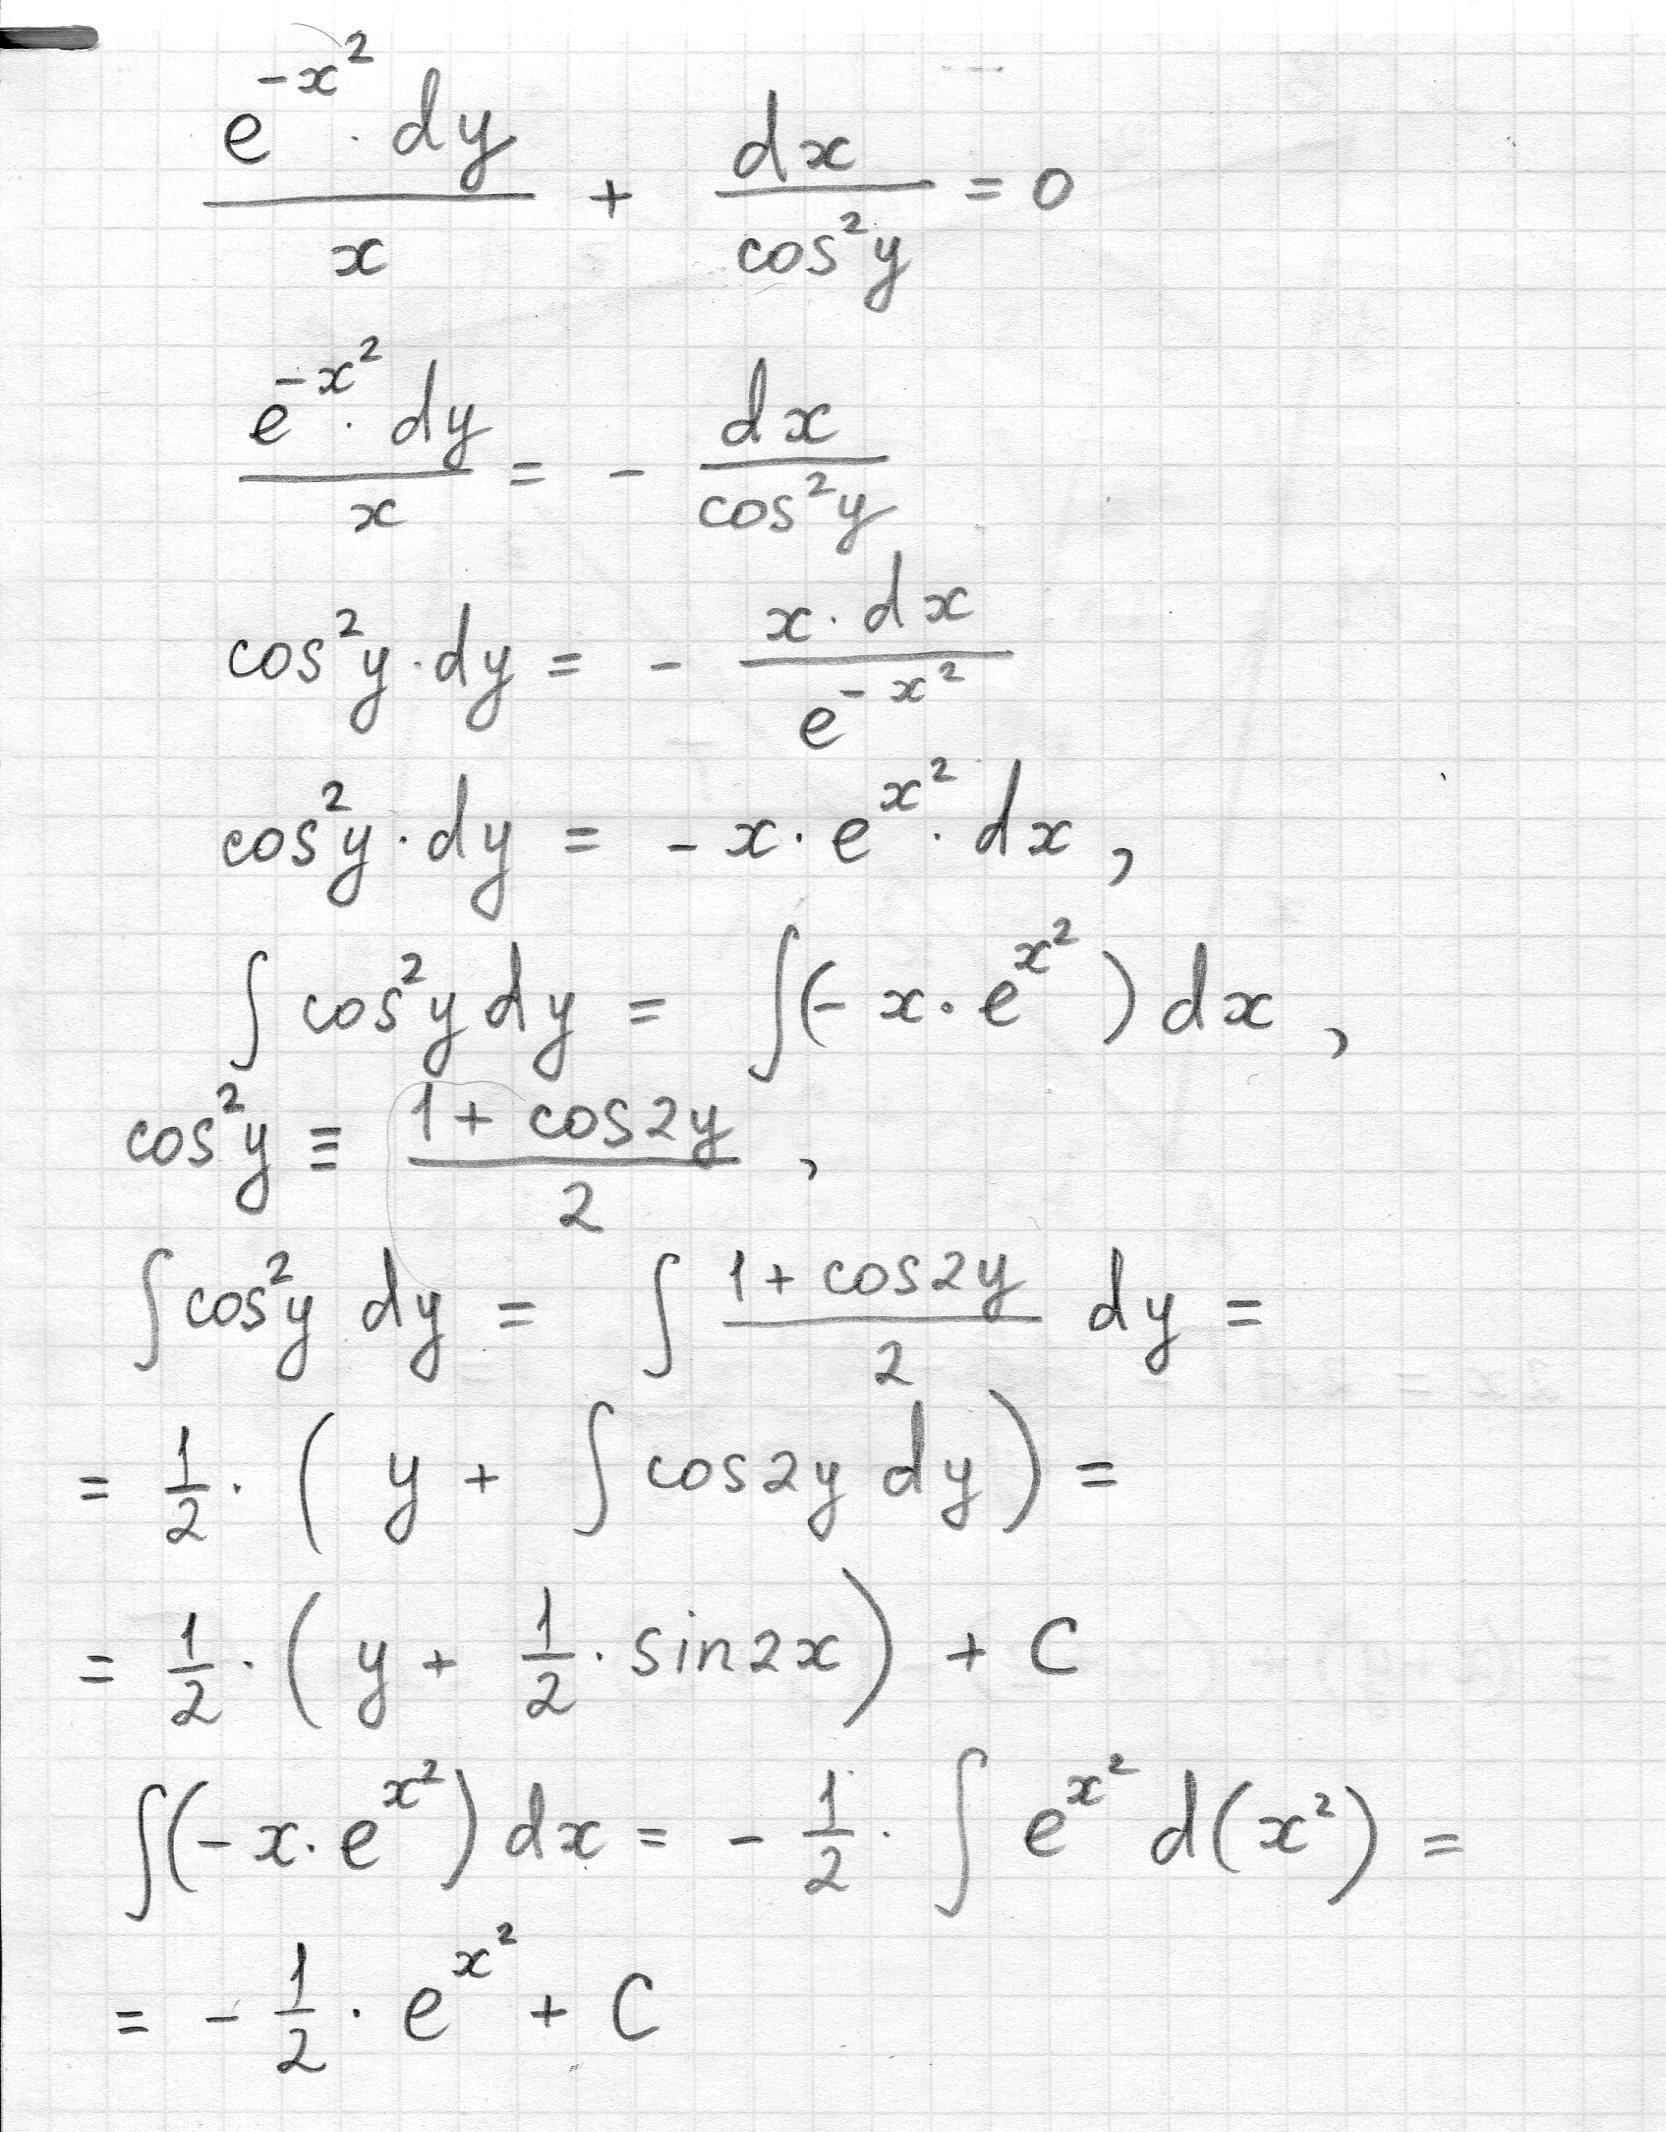 e^{-x^2} · dy / x + dx / cos^2 y = 0
e^{-x^2} · dy / x = - dx / cos^2 y
cos^2 y · dy = - x · dx / e^{-x^2}
cos^2 y · dy = - x · e^{x^2} · dx ,
∫ cos^2 y dy = ∫ (- x · e^{x^2}) dx ,
cos^2 y ≡ (1 + cos 2y) / 2 ,
∫ cos^2 y dy = ∫ (1 + cos 2y) / 2 dy =
= 1/2 · ( y + ∫ cos 2y dy ) =
= 1/2 · ( y + 1/2 · sin 2x ) + C
∫ (- x · e^{x^2}) dx = - 1/2 · ∫ e^{x^2} d(x^2) =
= - 1/2 · e^{x^2} + C